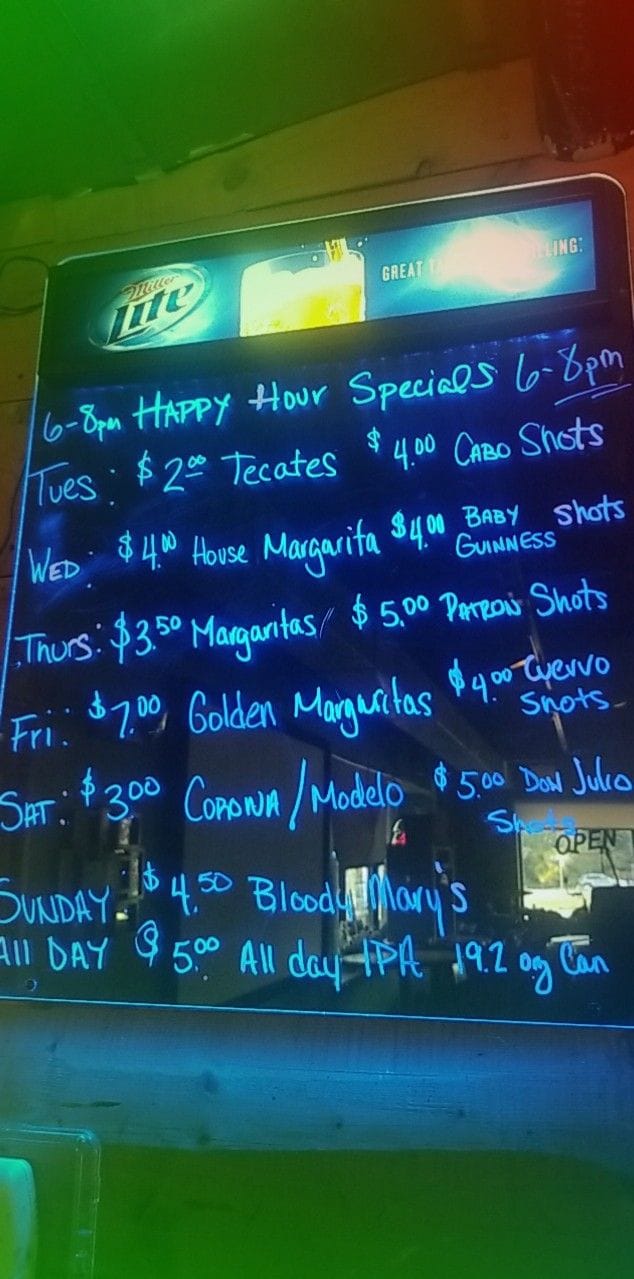 Miller
Lite
GREAT
6-8pm HAPPY Hour Specials 6-8pm
Tues: $2.00 Tecates $4.00 CABO Shots
WED: $4.00 House Margarita $4.00 BABY GUINNESS Shots
Thurs: $3.50 Margaritas/ $5.00 PATRON Shots
Fri: $7.00 Golden Margaritas $4.00 Cuervo Shots
SAT: $3.00 CORONA/Modelo $5.00 DON Julio Shots
OPEN
SUNDAY $4.50 Bloody Mary's
All DAY $5.00 All day IPA 19.2 oz Can